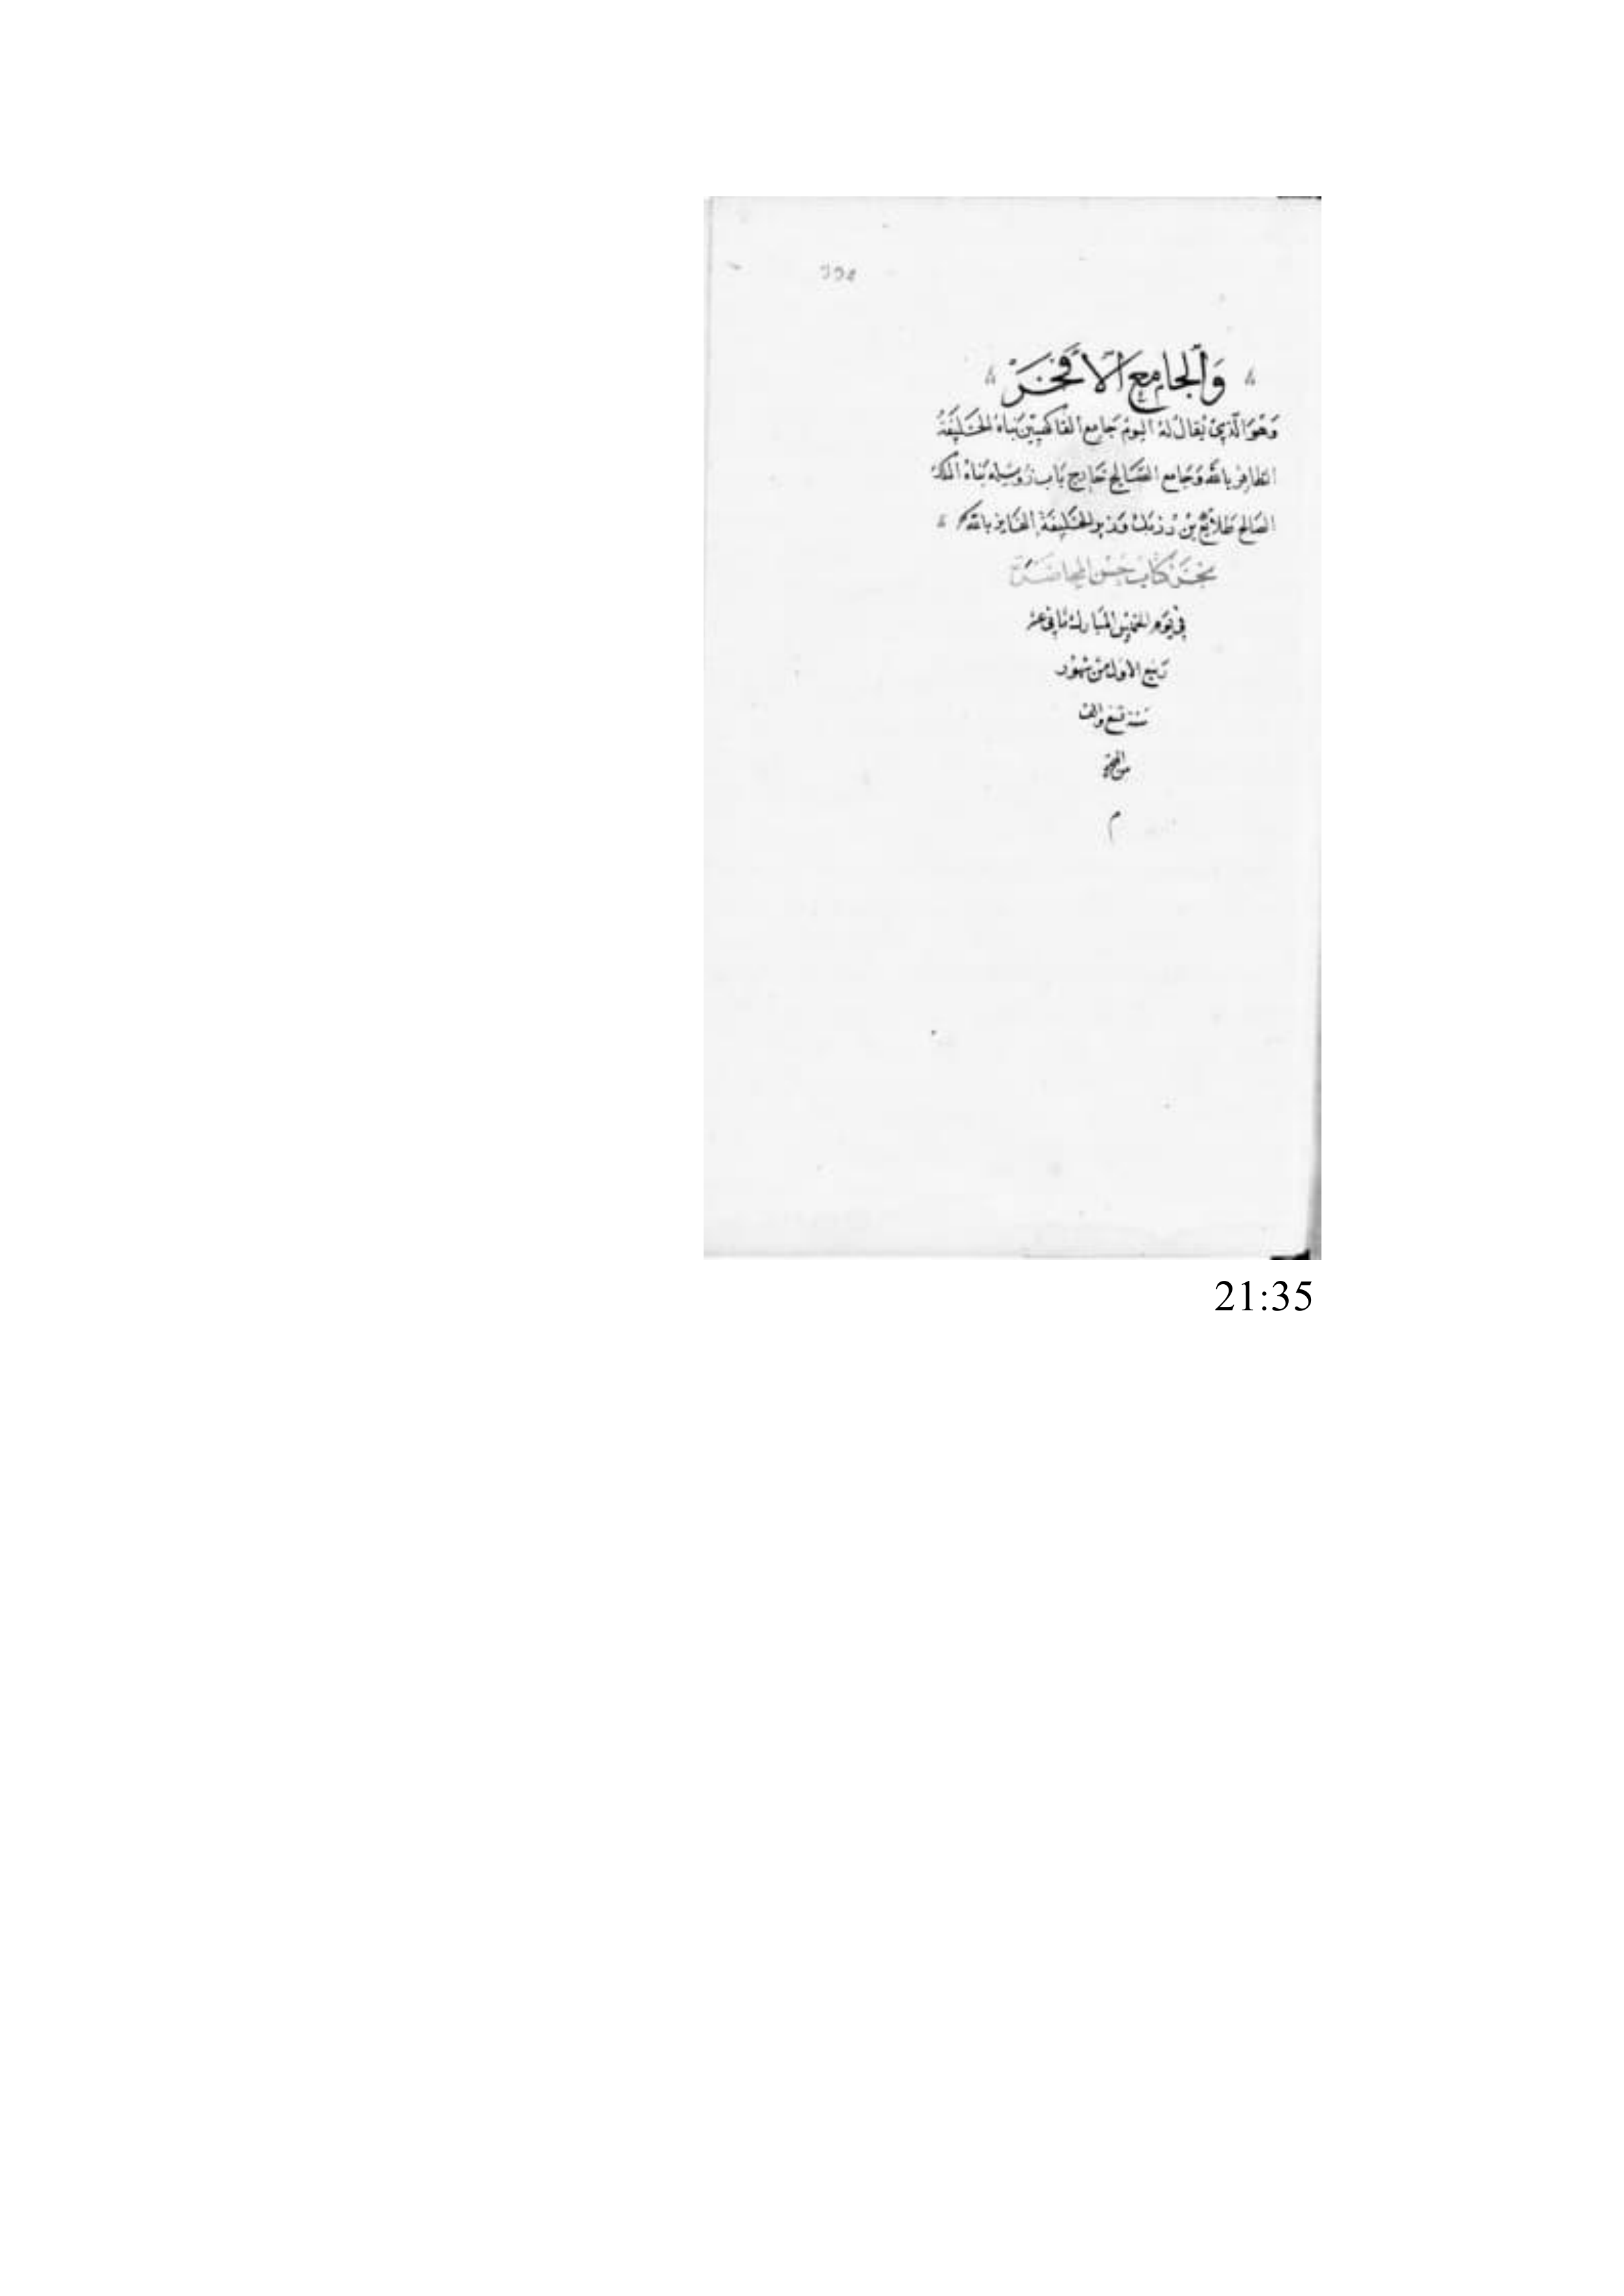 وَالجامِع الأفخَر
وَهوَ الَّذِي يُقالُ لهُ اليومَ جَامِع الفَاكهيين بَناهُ الخَليفَةُ
الظافِرُ باللَّه وَجَامع الصَّالح خَارج بَاب زُويلة بَناهُ الملك
الصَالح طَلائع بْن رُزيك وَزير الخَليفَة الفايز باللَّه
نَجَزَ كتَابُ حُسْن المحاضَرَة
فى يَوم الخميس المبَارك ثانى عشر
رَبيع الاول من شهور
سَنة تسع والف
من الهجرة
م
21:35